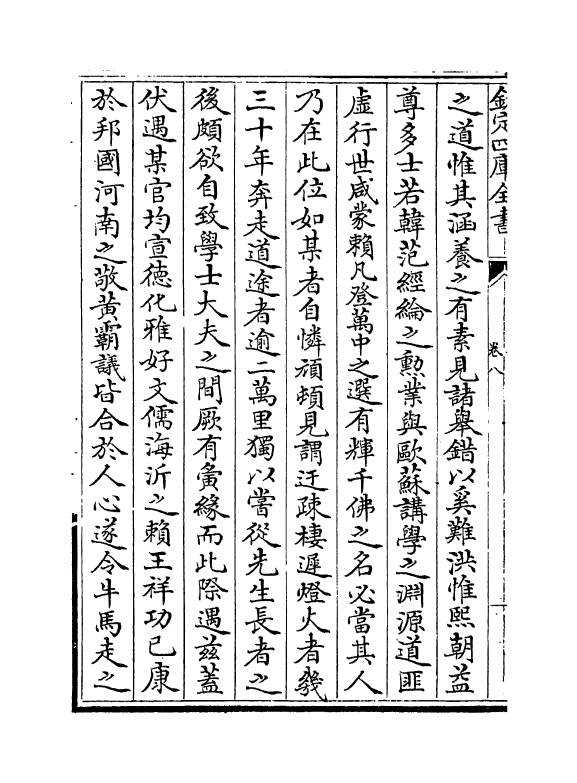 欽定四庫全書
卷八
之道惟其涵養之有素見諸舉錯以奚難洪惟熙朝益
尊多士若韓范經綸之勲業與歐蘇講學之淵源道匪
虚行世咸蒙賴凡登萬中之選有輝千佛之名必當其人
乃在此位如某者自憐頑頓見謂迂疎棲遲燈火者幾
三十年奔走道途者逾二萬里獨以嘗從先生長者之
後頗欲自致學士大夫之間厥有夤緣而此際遇兹蓋
伏遇某官均宣德化雅好文儒海沂之賴王祥功已康
於邦國河南之敬黄霸議皆合於人心遂令牛馬走之